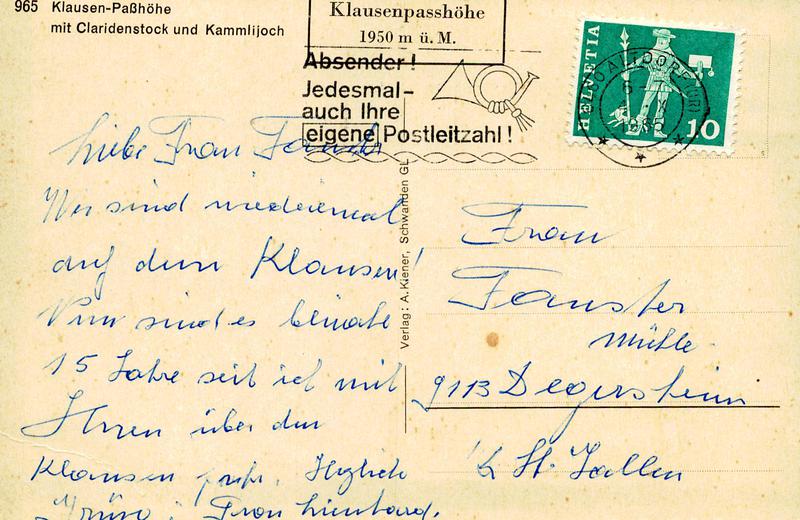 965 Klausen-Paßhöhe
mit Claridenstock und Kammlijoch
Klausenpasshöhe
1950 m ü. M.
Absender!
Jedesmal-
auch Ihre
eigene Postleitzahl!
HELVETIA
10
ALTDORF (URI)
Verlag: A. Kiener, Schwanden GL
Liebe Frau
Wir sind wiedereinmal
auf dem Klausen!
Nun sind es beinahe
15 Jahre seit ich mit
Ihnen über den
Klausen fuhr. Herzliche
Grüsse Frau Lienhard.
Frau
Mühle
9113 Degersheim
St. Gallen